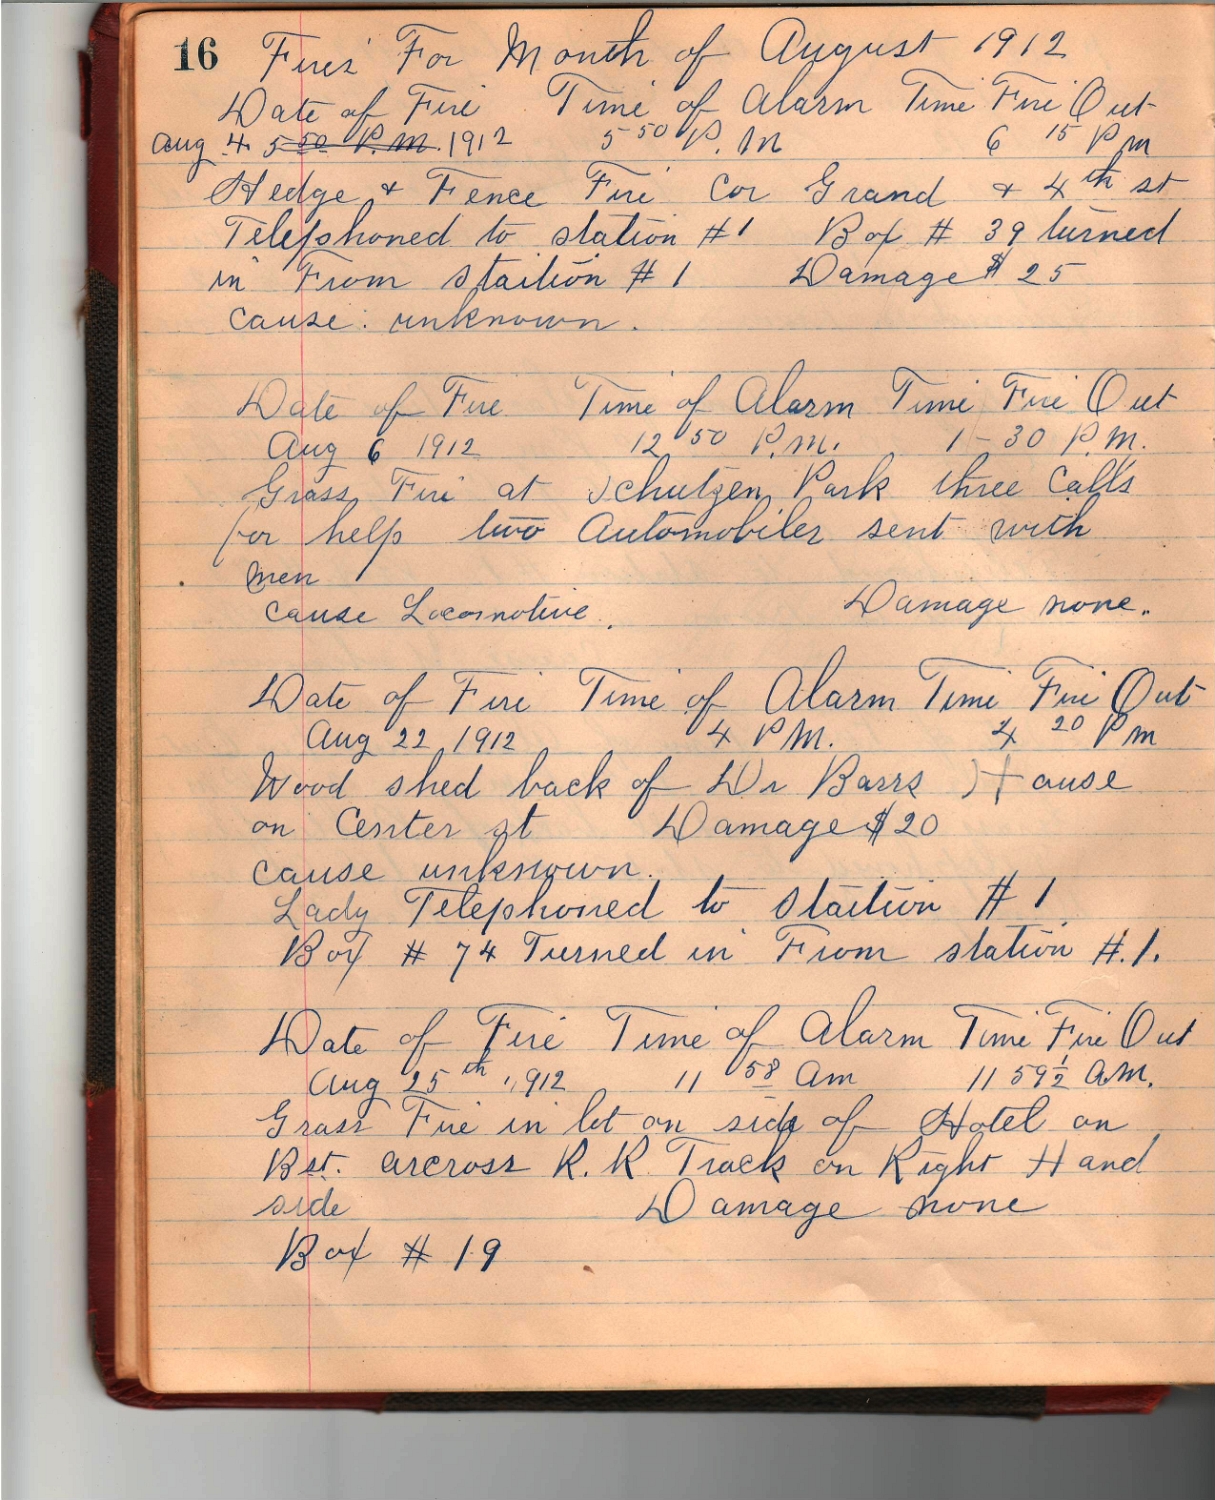 16 Fires For Month of August 1912
Date of Fire Time of Alarm Time Fire Out
Aug 4. 5 50 P.M. 1912 5 50 P. M 6 15 P m
Hedge & Fence Fire Cor Grand & 4th st
Telephoned to station #1 Box # 39 turned
in From Staition # 1 Damage $ 25
cause: unknown.
Date of Fire Time of Alarm Time Fire Out
Aug 6 1912 12 50 P.M. 1-30 P.M.
Grass Fire at Schutzen Park three Calls
for help two Automobiles sent with
men
cause Locomotive. Damage none.
Date of Fire Time of Alarm Time Fire Out
Aug 22, 1912 4 P.M. 4 20 P m
Wood shed back of Dr Barrs House
on Center st Damage $20
cause unknown.
Lady Telephoned to Staition # 1.
Box # 74 Turned in From station #.1.
Date of Fire Time of Alarm Time Fire Out
Aug 25th, 1912 11 58 Am 11 59½ A.M.
Grass Fire in lot on side of Hotel on
B st. arcross R. R. Track on Right Hand
side Damage none
Box # 19